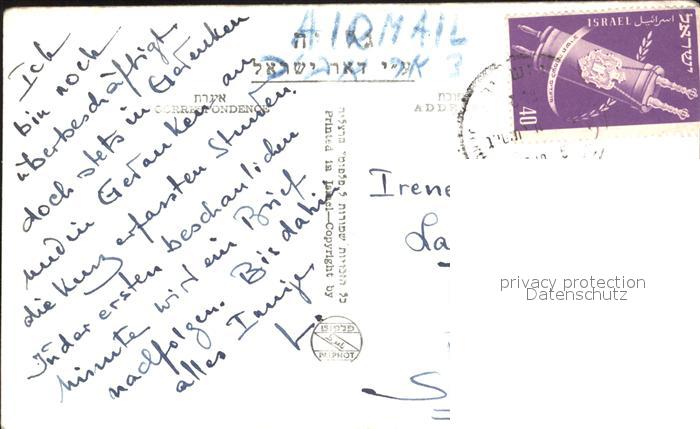 Ich
bin noch
überbeschäftigt
doch stets in Gedanken
und in Gedanken an
die kurz erfassten Stunden.
In der ersten beschaulichen
Minute wird ein Brief
nachfolgen. Bis dahin
alles Innige
AIRMAIL
ע"י דאר ישראל
אגרת
CORRESPONDENCE
ADD
Printed in Israel—Copyright by
פלפוט
PALPHOT
Irene
La
S
ISRAEL
اسرائيل
ישראל
40
privacy protection
Datenschutz